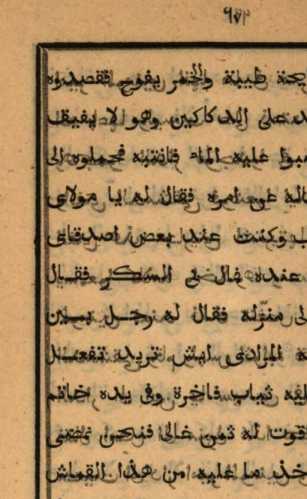 ٦٩٢
يحة طيبة والخمر يفوح فقصدوه
على الدكاكين وهو لا يفيق
عليه الماء فانتبه فحملوه الى
عن امره فقال له يا مولاى
وكنت عند بعض اصدقاى
عنده فال بى السكر فقال
منزله فقال له رجل بين
المرادى ايش تريد تفعل
ثياب فاخرة وفى يده خاتم
قوت له ثمن غالى فنحن نمضى
خذ ما عليه من هذا القماش